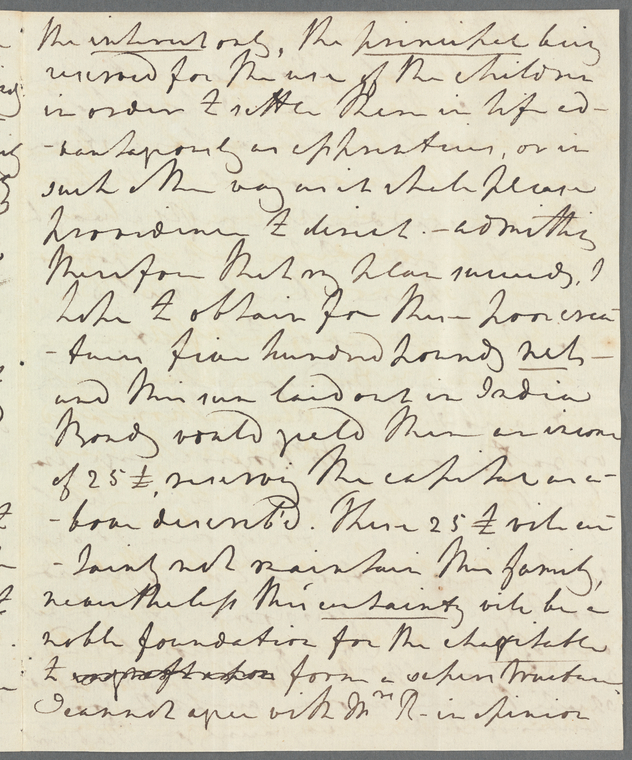 the interest only, the principal being
reserved for the use of the children
in order to settle them in life ad-
-vantageously as apprentices, or in
such other way as it shall please
providence to direct. - admitting
therefore that my plan succeeds, I
hope to obtain for these poor crea-
-tures five hundred pounds nett -
and this sum laid out in India
Bonds would yield them an income
of 25 £, reserving the capital as a-
-bove describ'd. These 25 £ will cer-
-tainly not maintain this family,
nevertheless this certainty will be a
noble foundation for the charitable
to form a superstructure
I cannot agree with Mrs R- in opinion